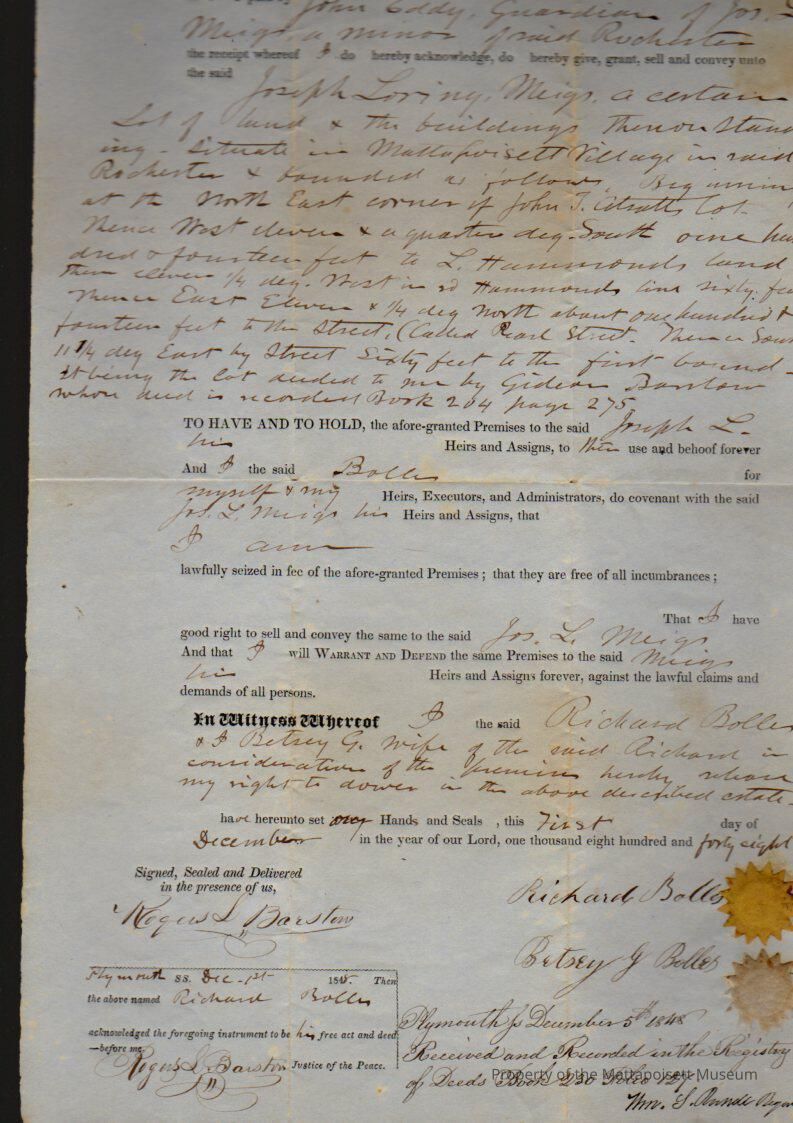 John Eddy, Guardian of Jos. L
Meigs, a minor of said Rochester
the receipt whereof I do hereby acknowledge, do hereby give, grant, sell and convey unto
the said
Joseph Loring Meigs, a certain
Lot of land & the buildings thereon Stand
ing - Situate in Mattapoisett Village in said
Rochester & bounded as follows, Beginnin
at the North East corner of John T. Atsatts lot.
thence West eleven & a quarter deg. South one hun
dred & fourteen feet to L. Hammonds land
then eleven 1/4 deg. West in sd Hammonds line sixty fee
thence East Eleven & 1/4 deg North about one hundred &
fourteen feet to the Street, (Called Pearl Street. Thence Sou
11 1/4 deg East by Street Sixty feet to the first bound -
It being the lot deeded to me by Gideon Barstow
whose deed is recorded Book 204 page 275
TO HAVE AND TO HOLD, the afore-granted Premises to the said Joseph L.
his Heirs and Assigns, to their use and behoof forever
And I the said Bolles for
myself & my Heirs, Executors, and Administrators, do covenant with the said
Jos. L. Meigs his Heirs and Assigns, that
I am
lawfully seized in fee of the afore-granted Premises ; that they are free of all incumbrances ;
That I have
good right to sell and convey the same to the said Jos. L. Meigs
And that I will WARRANT AND DEFEND the same Premises to the said Meigs
his Heirs and Assigns forever, against the lawful claims and
demands of all persons.
In Witness Whereof I the said Richard Bolles
& I Betsey G. wife of the said Richard in
consideration of the premises hereby release
my right to dower in the above described estate -
have hereunto set our Hands and Seals , this First day of
December in the year of our Lord, one thousand eight hundred and forty eight
Signed, Sealed and Delivered
in the presence of us,
Rogers L. Barstow
Richard Bolles
Betsey G Bolles
Plymouth SS. Dec. 1st 1848. Then
the above named Richard Bolles
acknowledged the foregoing instrument to be his free act and deed
—before me,
Rogers L. Barstow Justice of the Peace.
Plymouth Ss December 5th 1848
Received and Recorded in the Registry
of Deeds Book 230 Folio 127
Wm. S. Regis
Property of the Mattapoisett Museum